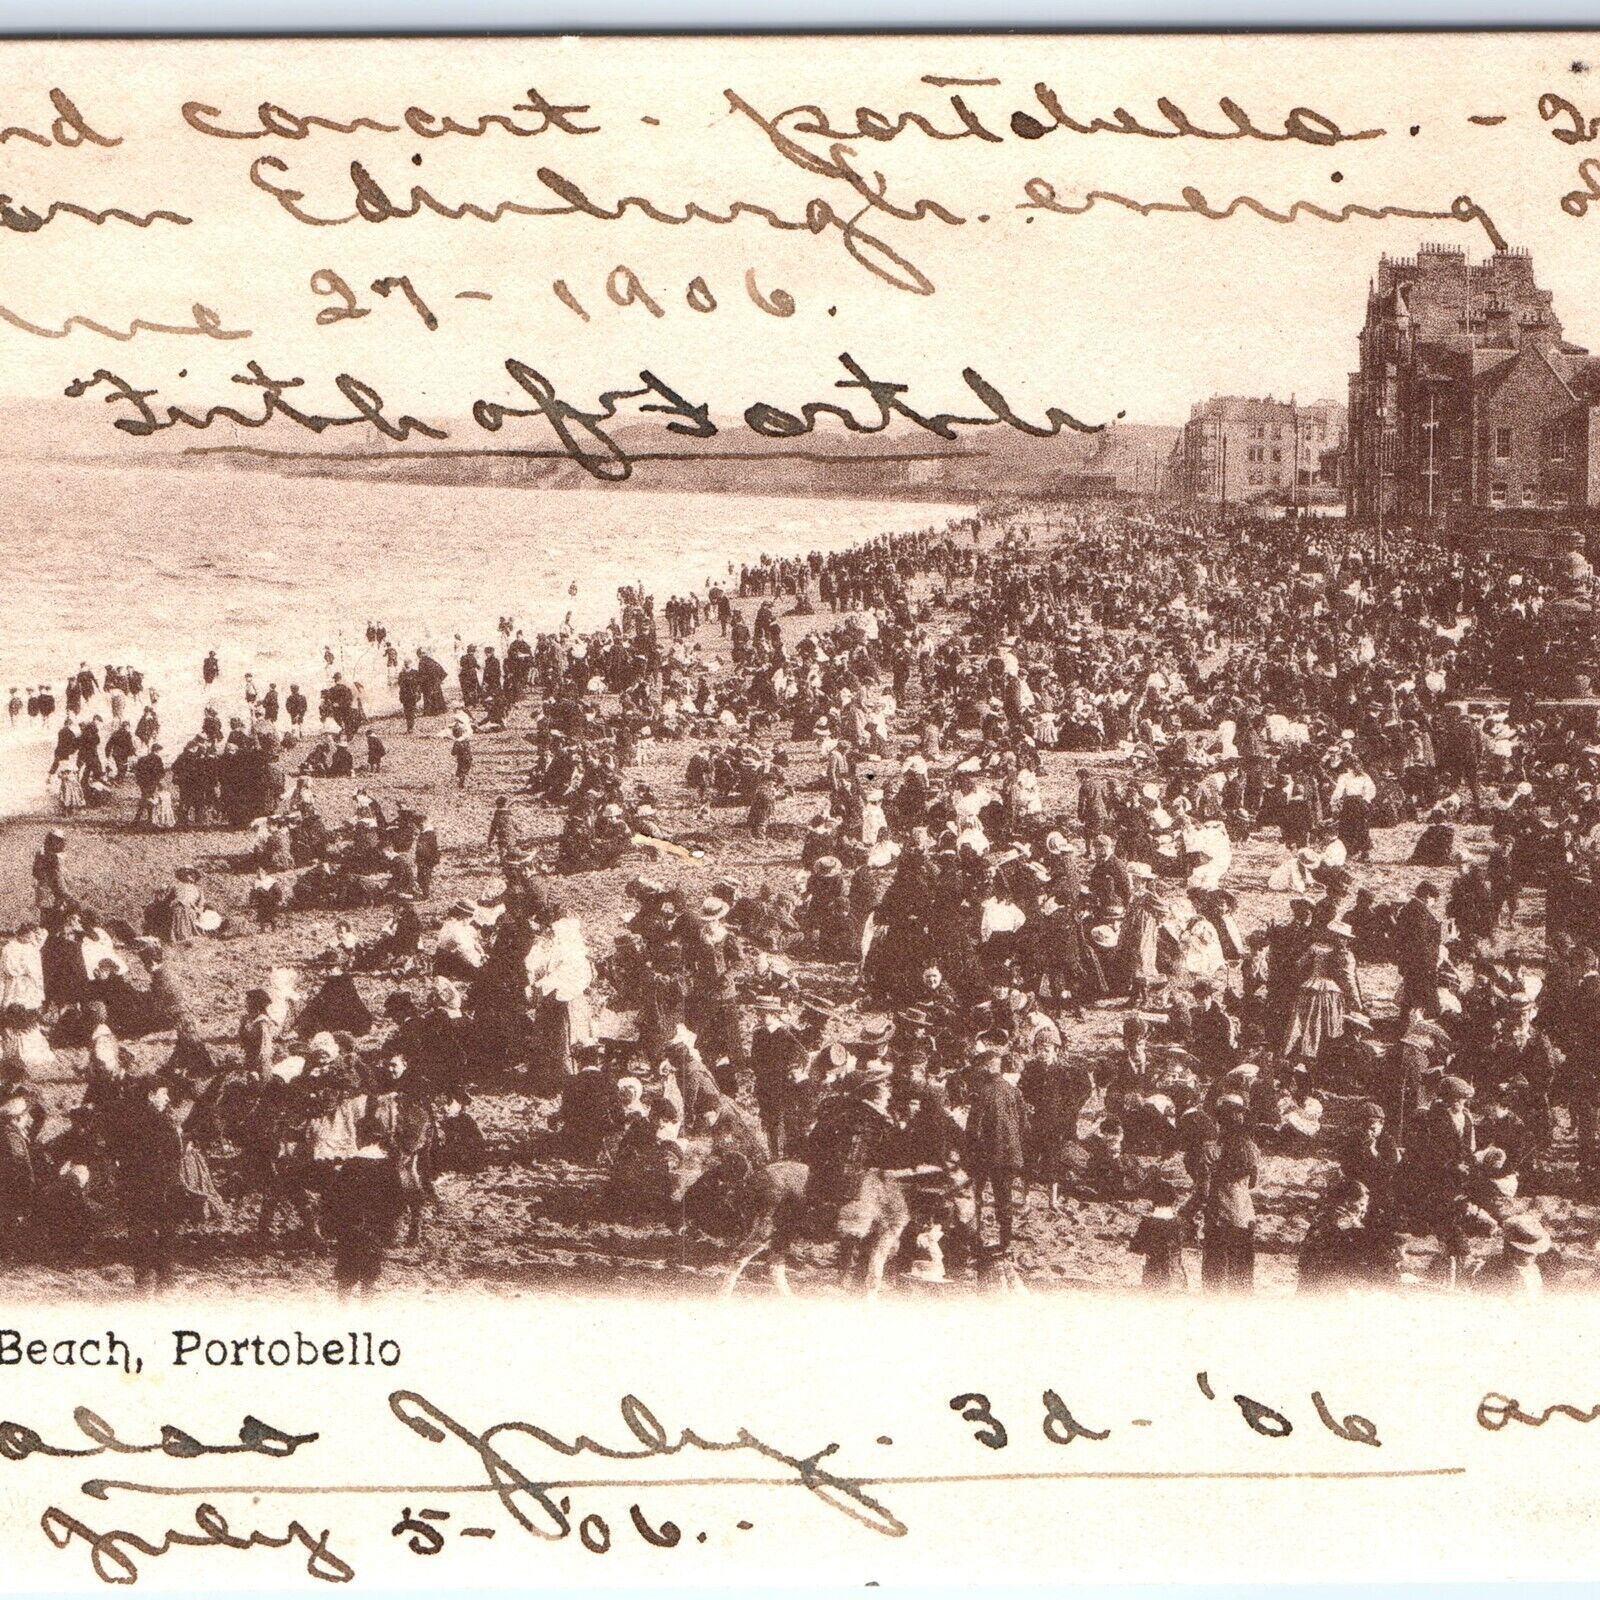 nd concert - portobello. -
om Edinburgh. evening of
une 27 - 1906.
"Firth of Forth".
Beach, Portobello
also July. 3d - '06 an
July 5 - '06.